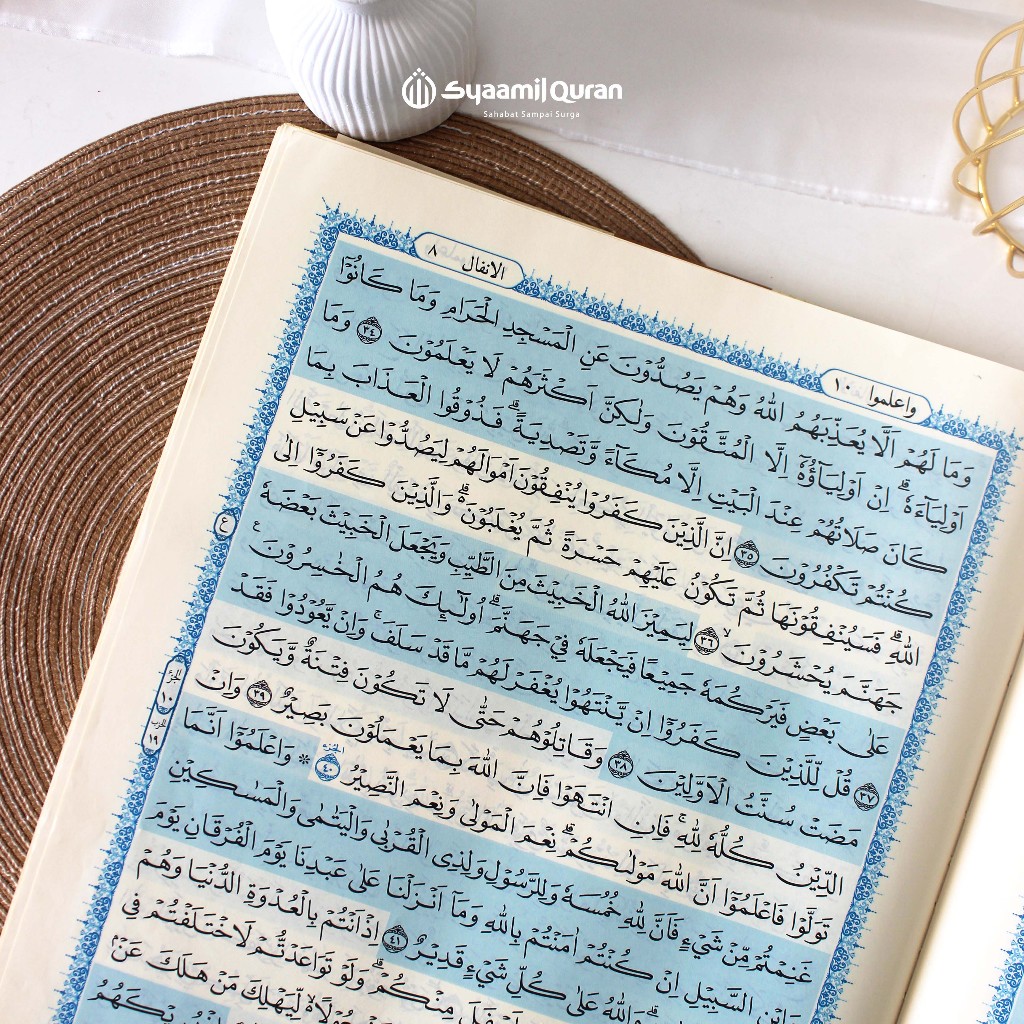 Syaamil Quran
Sahabat Sampai Surga
الانفال ٨
واعلموا ١٠
وَمَا لَهُمْ اَلَّا يُعَذِّبَهُمُ اللّٰهُ وَهُمْ يَصُدُّوْنَ عَنِ الْمَسْجِدِ الْحَرَامِ وَمَا كَانُوْٓا
اَوْلِيَاۤءَهٗۗ اِنْ اَوْلِيَاۤؤُهٗٓ اِلَّا الْمُتَّقُوْنَ وَلٰكِنَّ اَكْثَرَهُمْ لَا يَعْلَمُوْنَ ٣٤ وَمَا
كَانَ صَلَاتُهُمْ عِنْدَ الْبَيْتِ اِلَّا مُكَاۤءً وَّتَصْدِيَةًۗ فَذُوْقُوا الْعَذَابَ بِمَا
كُنْتُمْ تَكْفُرُوْنَ ٣٥ اِنَّ الَّذِيْنَ كَفَرُوْا يُنْفِقُوْنَ اَمْوَالَهُمْ لِيَصُدُّوْا عَنْ سَبِيْلِ
اللّٰهِۗ فَسَيُنْفِقُوْنَهَا ثُمَّ تَكُوْنُ عَلَيْهِمْ حَسْرَةً ثُمَّ يُغْلَبُوْنَەۗ وَالَّذِيْنَ كَفَرُوْٓا اِلٰى
جَهَنَّمَ يُحْشَرُوْنَۙ ٣٦ لِيَمِيْزَ اللّٰهُ الْخَبِيْثَ مِنَ الطَّيِّبِ وَيَجْعَلَ الْخَبِيْثَ بَعْضَهٗ
عَلٰى بَعْضٍ فَيَرْكُمَهٗ جَمِيْعًا فَيَجْعَلَهٗ فِيْ جَهَنَّمَۗ اُولٰۤىِٕكَ هُمُ الْخٰسِرُوْنَ ع
٣٧ قُلْ لِّلَّذِيْنَ كَفَرُوْٓا اِنْ يَّنْتَهُوْا يُغْفَرْ لَهُمْ مَّا قَدْ سَلَفَۚ وَاِنْ يَّعُوْدُوْا فَقَدْ
مَضَتْ سُنَّتُ الْاَوَّلِيْنَ ٣٨ وَقَاتِلُوْهُمْ حَتّٰى لَا تَكُوْنَ فِتْنَةٌ وَّيَكُوْنَ
الدِّيْنُ كُلُّهٗ لِلّٰهِۚ فَاِنِ انْتَهَوْا فَاِنَّ اللّٰهَ بِمَا يَعْمَلُوْنَ بَصِيْرٌ ٣٩ وَاِنْ
تَوَلَّوْا فَاعْلَمُوْٓا اَنَّ اللّٰهَ مَوْلٰىكُمْۗ نِعْمَ الْمَوْلٰى وَنِعْمَ النَّصِيْرُ ٤٠ ۞ وَاعْلَمُوْٓا اَنَّمَا
غَنِمْتُمْ مِّنْ شَيْءٍ فَاَنَّ لِلّٰهِ خُمُسَهٗ وَلِلرَّسُوْلِ وَلِذِى الْقُرْبٰى وَالْيَتٰمٰى وَالْمَسٰكِيْنِ
وَابْنِ السَّبِيْلِ اِنْ كُنْتُمْ اٰمَنْتُمْ بِاللّٰهِ وَمَآ اَنْزَلْنَا عَلٰى عَبْدِنَا يَوْمَ الْفُرْقَانِ يَوْمَ
وَاللّٰهُ عَلٰى كُلِّ شَيْءٍ قَدِيْرٌ ٤١ اِذْ اَنْتُمْ بِالْعُدْوَةِ الدُّنْيَا وَهُمْ
مِنْكُمْۗ وَلَوْ تَوَاعَدْتُّمْ لَاخْتَلَفْتُمْ فِى
لِّيَهْلِكَ مَنْ هَلَكَ عَنْۢ
ع
الجزء
١٠
الحزب
١٩